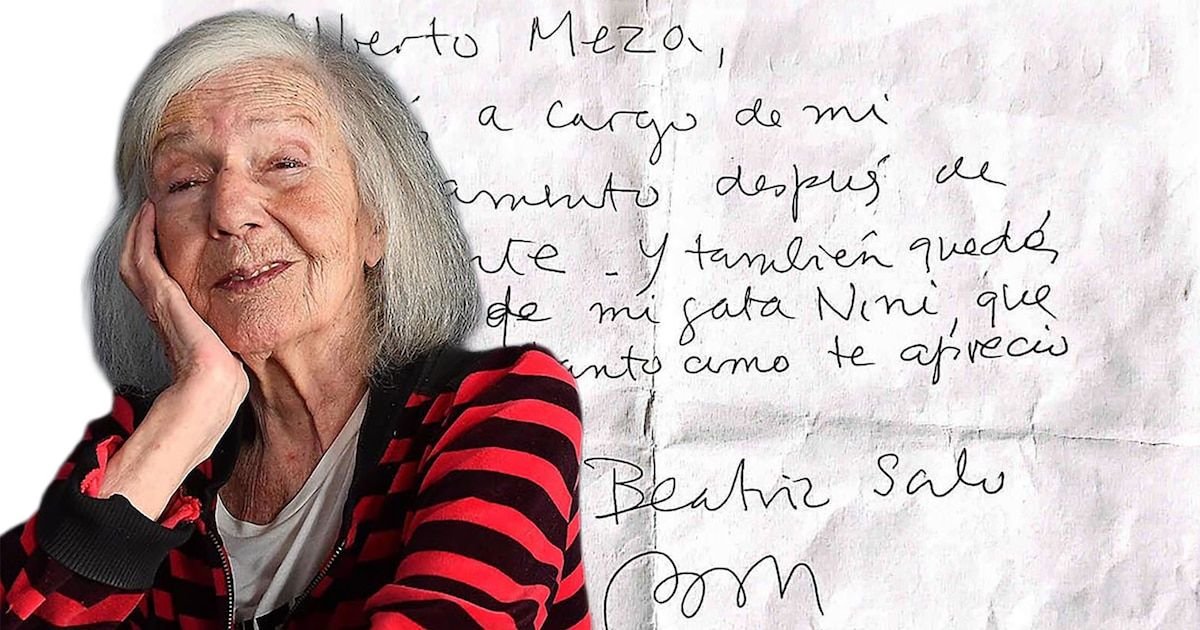 lberto Meza,
a cargo de mi
amento después de
nte - Y también quedás
de mi gata Nini, que
anto como te aprecio
Beatriz Sarlo